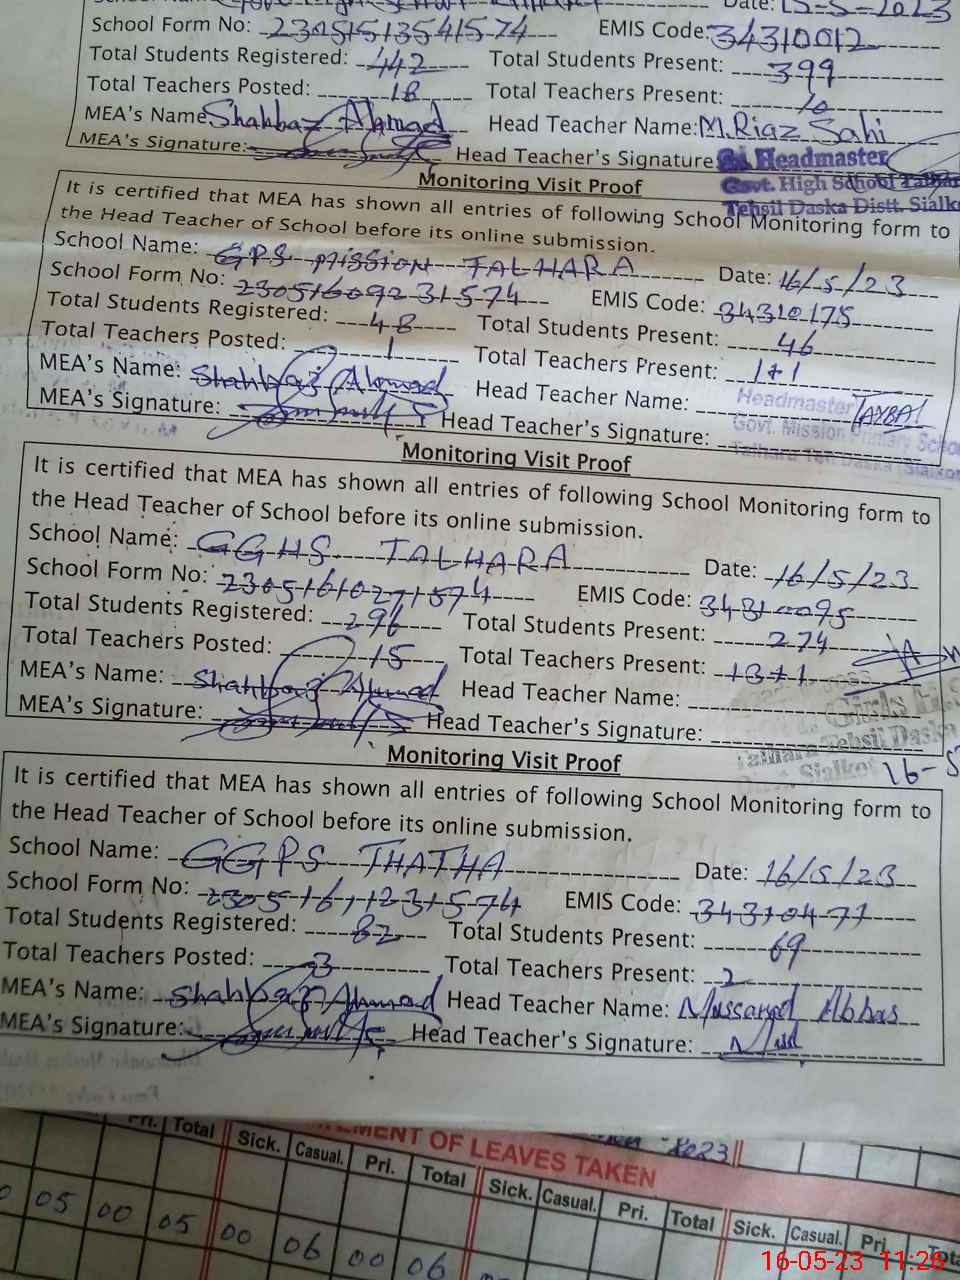 Date: 15-5-2023
School Form No: 23051513541574 EMIS Code: 34310012
Total Students Registered: 442 Total Students Present: 399
Total Teachers Posted: 18 Total Teachers Present: 10
MEA's Name Shahbaz Ahmad Head Teacher Name: M. Riaz Sahi
MEA's Signature: Head Teacher's Signature
Headmaster
Govt. High School Talhara
Tehsil Daska Distt. Sialkot
Monitoring Visit Proof
It is certified that MEA has shown all entries of following School Monitoring form to
the Head Teacher of School before its online submission.
School Name: GPS MISSION TALHARA Date: 16/5/23
School Form No: 23051609231574 EMIS Code: 34310175
Total Students Registered: 48 Total Students Present: 46
Total Teachers Posted: 1 Total Teachers Present: 1+1
MEA's Name: Shahbaz Ahmad Head Teacher Name:
MEA's Signature: Head Teacher's Signature:
Headmaster
Govt. Mission Primary School
Talhara Teh Daska (Sialkot
Monitoring Visit Proof
It is certified that MEA has shown all entries of following School Monitoring form to
the Head Teacher of School before its online submission.
School Name: GGHS TALHARA Date: 16/5/23
School Form No: 23051610271574 EMIS Code: 34310095
Total Students Registered: 296 Total Students Present: 274
Total Teachers Posted: 15 Total Teachers Present: 13+1
MEA's Name: Shahbaz Ahmad Head Teacher Name:
MEA's Signature: Head Teacher's Signature:
Girls H.S
Talhara Tehsil Daska
Sialkot 16-5
Monitoring Visit Proof
It is certified that MEA has shown all entries of following School Monitoring form to
the Head Teacher of School before its online submission.
School Name: GGPS THATHA Date: 16/5/23
School Form No: 23051611231574 EMIS Code: 34310477
Total Students Registered: 82 Total Students Present: 69
Total Teachers Posted: 3 Total Teachers Present: 2
MEA's Name: Shahbaz Ahmad Head Teacher Name: Mussarat Abbas
MEA's Signature: Head Teacher's Signature:
2023
OF LEAVES TAKEN
Pri. Total Sick. Casual. Pri. Total Sick. Casual. Pri. Total Sick. Casual. Pri.
05 00 05 00 06 00 06
16-05-23 11:26